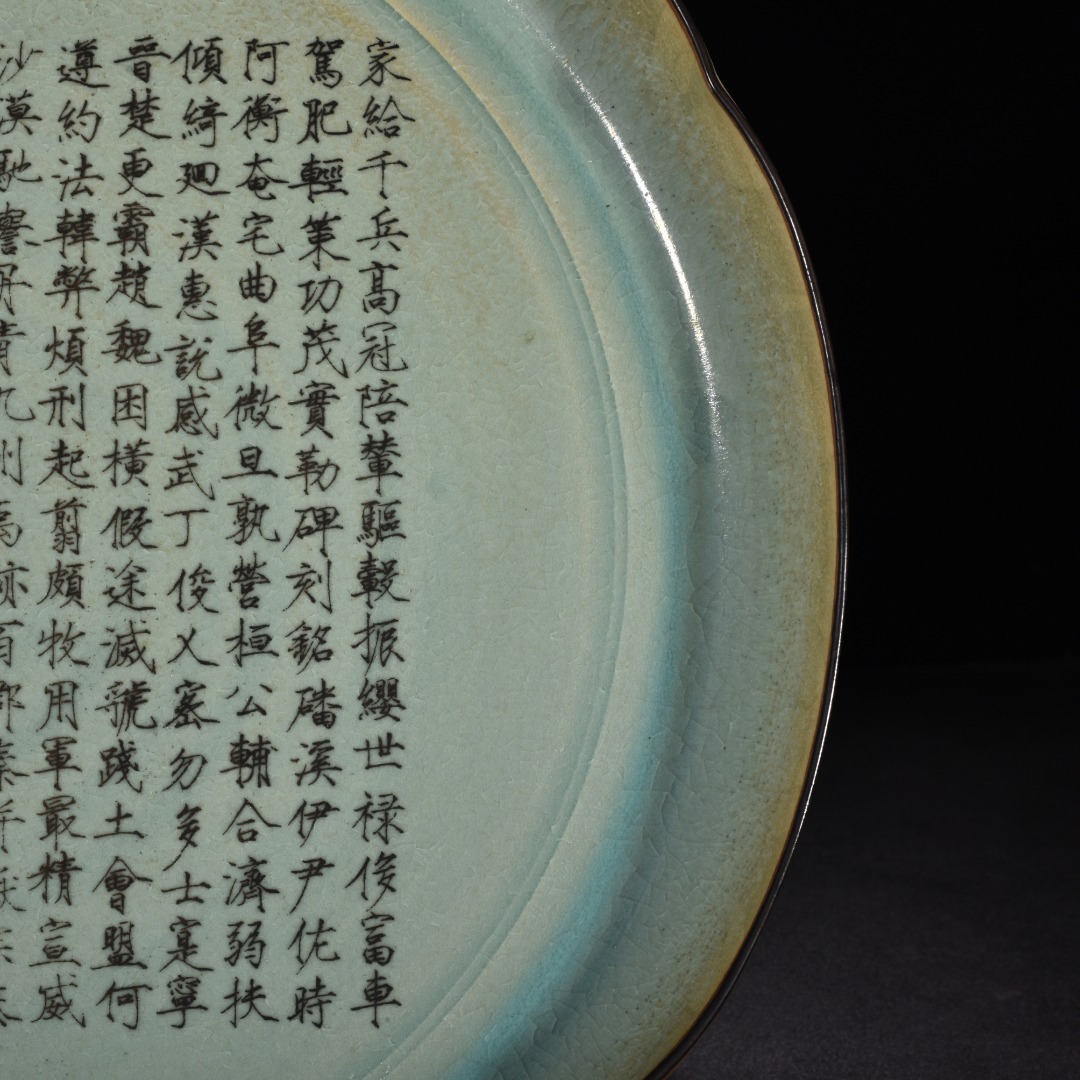 家給千兵髙冠陪輦驅轂振纓世禄侈富車
駕肥輕策功茂實勒碑刻銘磻溪伊尹佐時
阿衡奄宅曲阜微旦孰營桓公輔合濟弱扶
傾綺廻漢惠說感武丁俊乂密勿多士寔寧
晉楚更霸趙魏困橫假途滅虢踐土會盟何
遵約法韓弊煩刑起翦頗牧用軍最精宣威
沙漠馳譽丹青九州禹跡百郡秦并嶽宗泰